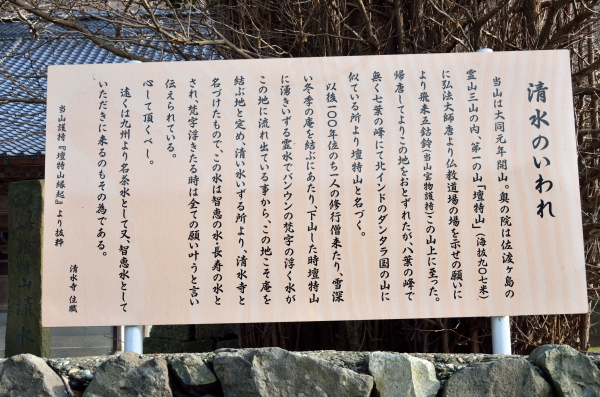 清水のいわれ
当山は大同元年開山。奥の院は佐渡ヶ島の
霊山三山の内、第一の山「壇特山」(海抜九〇七米)
に弘法大師唐より仏教道場の場を示せの願いに
より飛来五鈷鈴(当山宝物護持)この山上に至った。
帰唐してよりこの地をおとずれたが、八葉の峰で
無く七葉の峰にて北インドのダンタラ国の山に
似ている所より壇特山と名づく。
以後一〇〇年位のち一人の修行僧来たり、雪深
い冬季の庵を結ぶにあたり、下山した時壇特山
に湧きいずる霊水でバンウンの梵字の浮く水が
この地に流れ出ている事から、この地こそ庵を
結ぶ地と定め、清い水いずる所より、清水寺と
名づけたもので、この水は智恵の水・長寿の水と
され、梵字浮きたる時は全ての願い叶うと言い
伝えられている。
心して頂くべし。
遠くは九州より名茶水として又、智恵水として
いただきに来るのもその為である。
当山護持『壇特山縁起』より抜粋
清水寺 住職
山清水